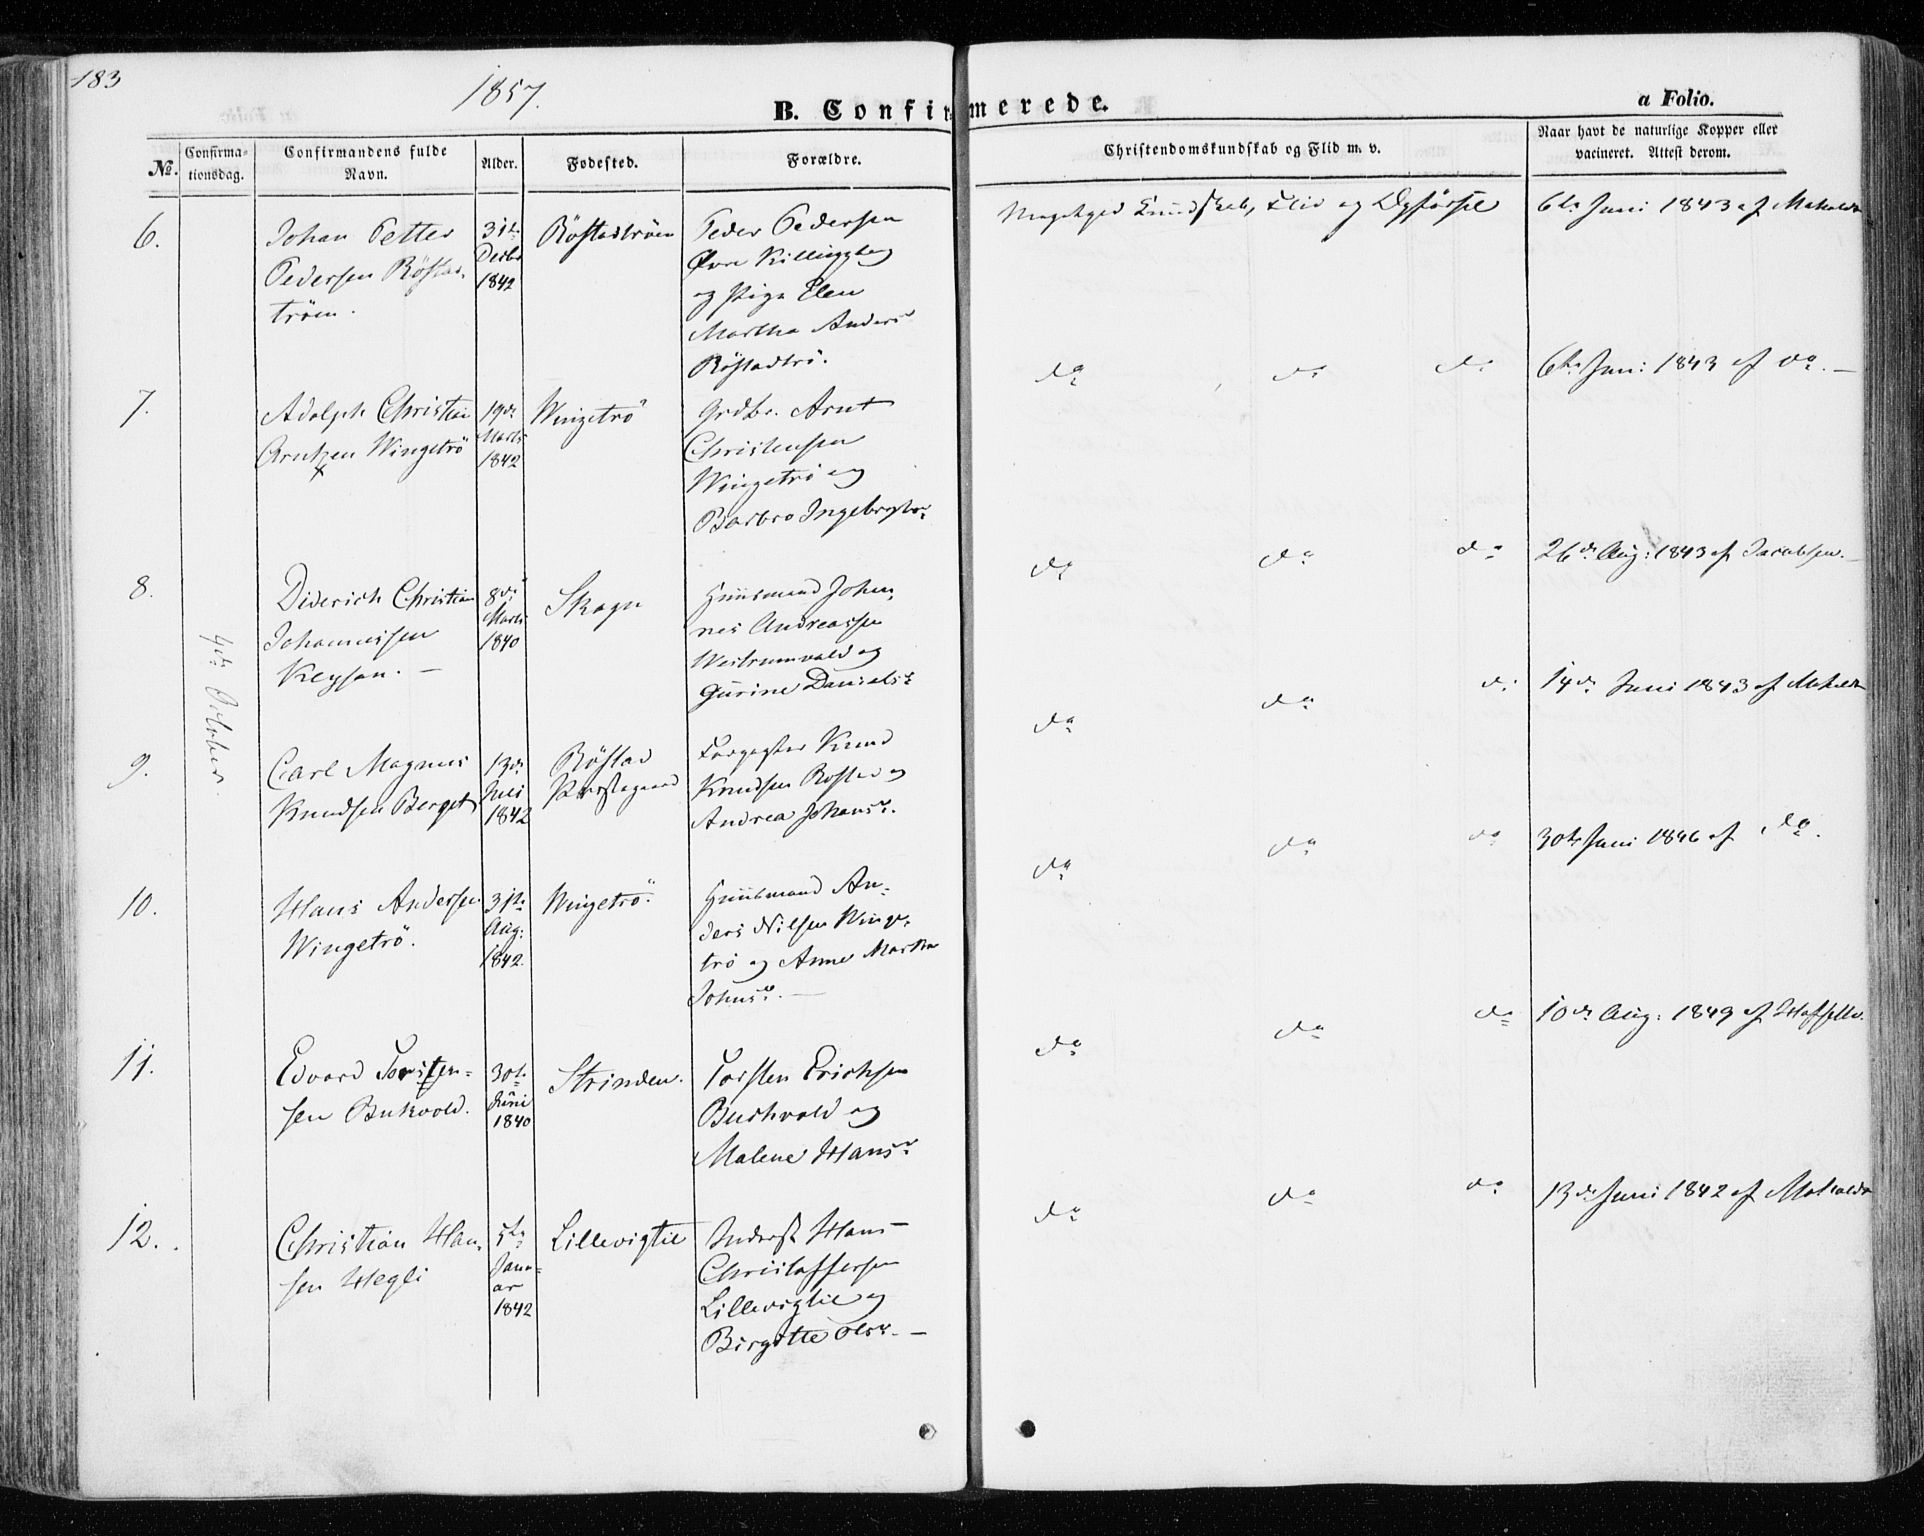 183
1857.
B. Confirmerede.
a Folio.
No.
Confirma-
tionsdag.
Confirmandens fulde
Navn.
Alder.
Fødested.
Forældre.
Christendomskundskab og Flid m. v.
Naar havt de naturlige Kopper eller
vacineret. Attest derom.
October
6.
Johan Petter
Pedersen Röstad-
tröen.
31te
Decbr
1842
Röstadtröen
Peder Pedersen
Øvre Killingberg
og Pige Elen
Martha Anders
Röstadtrö.
Meget god Kundskab, Flid og Opförsel
6te Juni 1843 af
7.
Adolph Christian
Arntzen Wingetrö
x
19de
Marts
1842
Wingetrö
Grdbr. Arnt
Christensen
Wingetrö og
Barbro Ingebrigtsr
do do do
6te Juni 1843 af do. —
8.
Diderich Christian
Johannessen
Keysan. —
8de
Marts
1840
Skogn
Huusmand Johan-
nes Andreassen
Westrumvald og
Gurine Daniels
do do do
26de Aug: 1843 af Jacobsen. —
9.
Carl Magnus
Knudsen Berget
13de
Juni
1842
Röstad
Præstegaard
Knud
Knudsen Rostad og
Andrea Johans.
do do do
14de Juni 1843 af
10.
Hans Andersen
Wingetrö.
31te
Aug:
1842.
Wingetrö.
Huusmand An-
ders Nilsen Winge-
trö og Anne Martha
Johns. —
do do do
30te Juni 1846 af do.
11.
Edvard Torsten-
sen Bukvold.
30te
Juni
1840
Strinden.
Torsten Erichsen
Buchvold og
Malene Hans
do do do
10de Aug: 1849 af
12.
Christian Han-
sen Hegli
5te
Janu-
ar
1842
Lillevigtil
Inderst Hans
Christoffersen
og
Birgitte Ols. —
do do do
13de Juni 1842 af